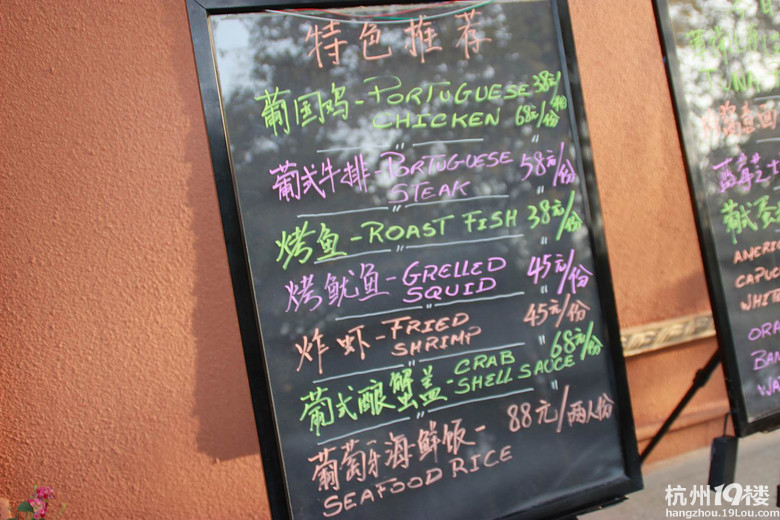 特色推荐
葡国鸡-PORTUGUESE 38元/
CHICKEN 68元/份
葡式牛排-PORTUGUESE 58元/份
STEAK
烤鱼-ROAST FISH 38元/份
烤鱿鱼-GRELLED 45元/份
SQUID
炸虾-FRIED 45元/份
SHRIMP
葡式酿蟹盖-CRAB 68元/份
SHELL SAUCE
葡萄牙海鲜饭- 88元/两人份
SEAFOOD RICE
TUNA
意面
葡式蛋
AMERI
CAPUC
WHIT
ORA
BAN
WA
杭州19楼
hangzhou.19lou.com